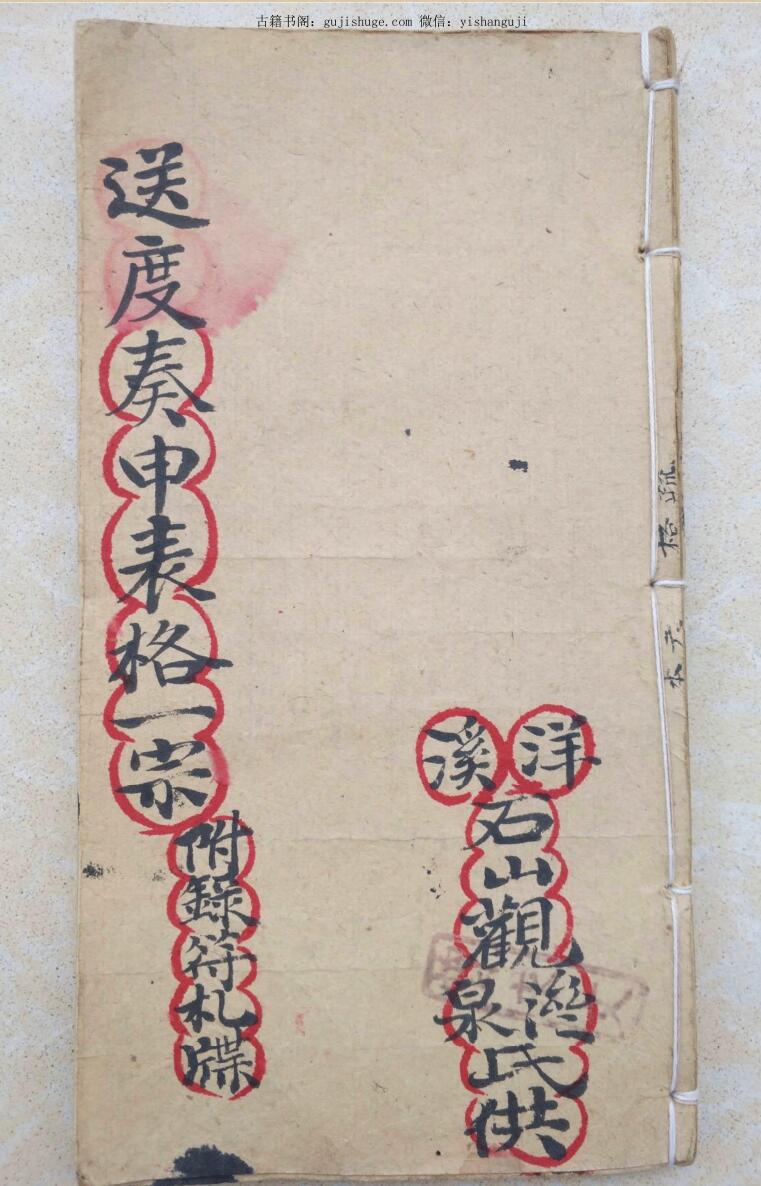 古籍书阁：gujishuge.com 微信：yishanguji
洋溪
石山觀
泉
氏供
送度奏申表格一宗
附錄符札牒